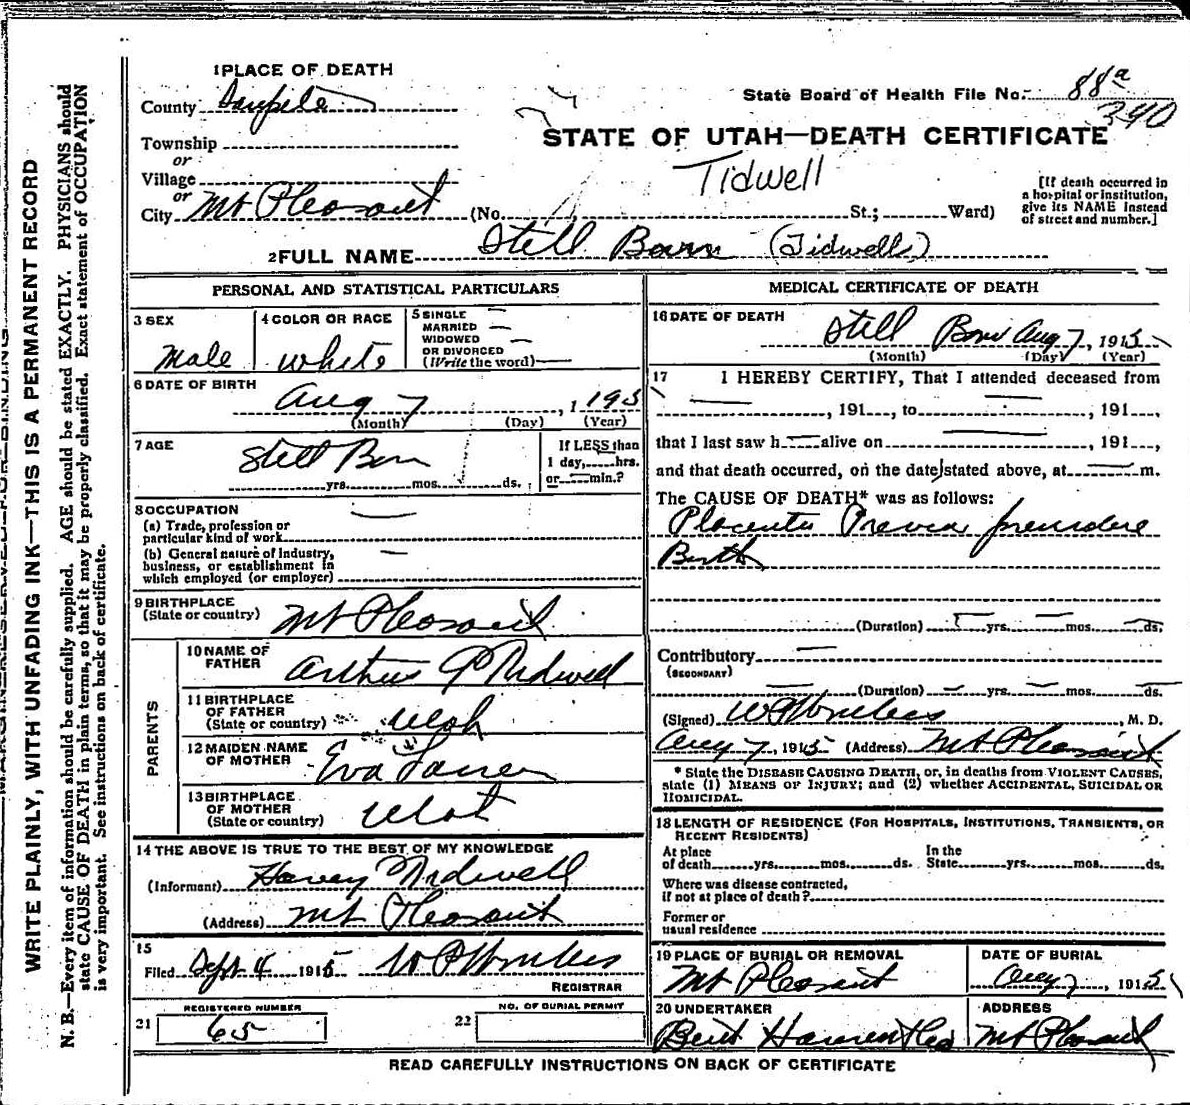 1 PLACE OF DEATH
County Sanpete
Township
or
Village
or
City Mt Pleasant (No. St.; Ward)
State Board of Health File No. 88a
340
STATE OF UTAH—DEATH CERTIFICATE
Tidwell
[If death occurred in
a hospital or institution,
give its NAME instead
of street and number.]
2 FULL NAME Still Born (Tidwells)
PERSONAL AND STATISTICAL PARTICULARS
3 SEX
Male
4 COLOR OR RACE
White
5 SINGLE
MARRIED
WIDOWED
OR DIVORCED
(Write the word)
6 DATE OF BIRTH
Aug 7, 1915
(Month) (Day) (Year)
7 AGE
Still Born
yrs. mos. ds.
If LESS than
1 day, hrs.
or min.?
8 OCCUPATION
(a) Trade, profession or
particular kind of work
(b) General nature of industry,
business, or establishment in
which employed (or employer)
9 BIRTHPLACE
(State or country) Mt Pleasant
PARENTS
10 NAME OF
FATHER Arthur Tidwell
11 BIRTHPLACE
OF FATHER
(State or country) Utah
12 MAIDEN NAME
OF MOTHER Eva
13 BIRTHPLACE
OF MOTHER
(State or country) Utah
14 THE ABOVE IS TRUE TO THE BEST OF MY KNOWLEDGE
(Informant) Harvey Tidwell
(Address) Mt Pleasant
15
Filed Sept 4 1915
REGISTRAR
REGISTERED NUMBER
21 65
NO. OF BURIAL PERMIT
22
MEDICAL CERTIFICATE OF DEATH
16 DATE OF DEATH
Still Born Aug 7, 1915
(Month) (Day) (Year)
17 I HEREBY CERTIFY, That I attended deceased from
, 191 , to , 191 ,
that I last saw h alive on , 191 ,
and that death occurred, on the date stated above, at m.
The CAUSE OF DEATH* was as follows:
Placenta Previa premature
Birth
(Duration) yrs. mos. ds.
Contributory
(SECONDARY)
(Duration) yrs. mos. ds.
(Signed) , M. D.
Aug 7, 1915 (Address) Mt Pleasant
* State the DISEASE CAUSING DEATH, or, in deaths from VIOLENT CAUSES,
state (1) MEANS OF INJURY; and (2) whether ACCIDENTAL, SUICIDAL OR
HOMICIDAL.
18 LENGTH OF RESIDENCE (FOR HOSPITALS, INSTITUTIONS, TRANSIENTS, OR
RECENT RESIDENTS)
At place In the
of death yrs. mos. ds. State yrs. mos. ds.
Where was disease contracted,
if not at place of death?
Former or
usual residence
19 PLACE OF BURIAL OR REMOVAL
Mt Pleasant
DATE OF BURIAL
Aug 7, 1915
20 UNDERTAKER
ADDRESS
Mt Pleasant
READ CAREFULLY INSTRUCTIONS ON BACK OF CERTIFICATE
MARGIN RESERVED FOR BINDING
WRITE PLAINLY, WITH UNFADING INK—THIS IS A PERMANENT RECORD
N. B.—Every item of information should be carefully supplied. AGE should be stated EXACTLY. PHYSICIANS should
state CAUSE OF DEATH in plain terms, so that it may be properly classified. Exact statement of OCCUPATION
is very important. See instructions on back of certificate.